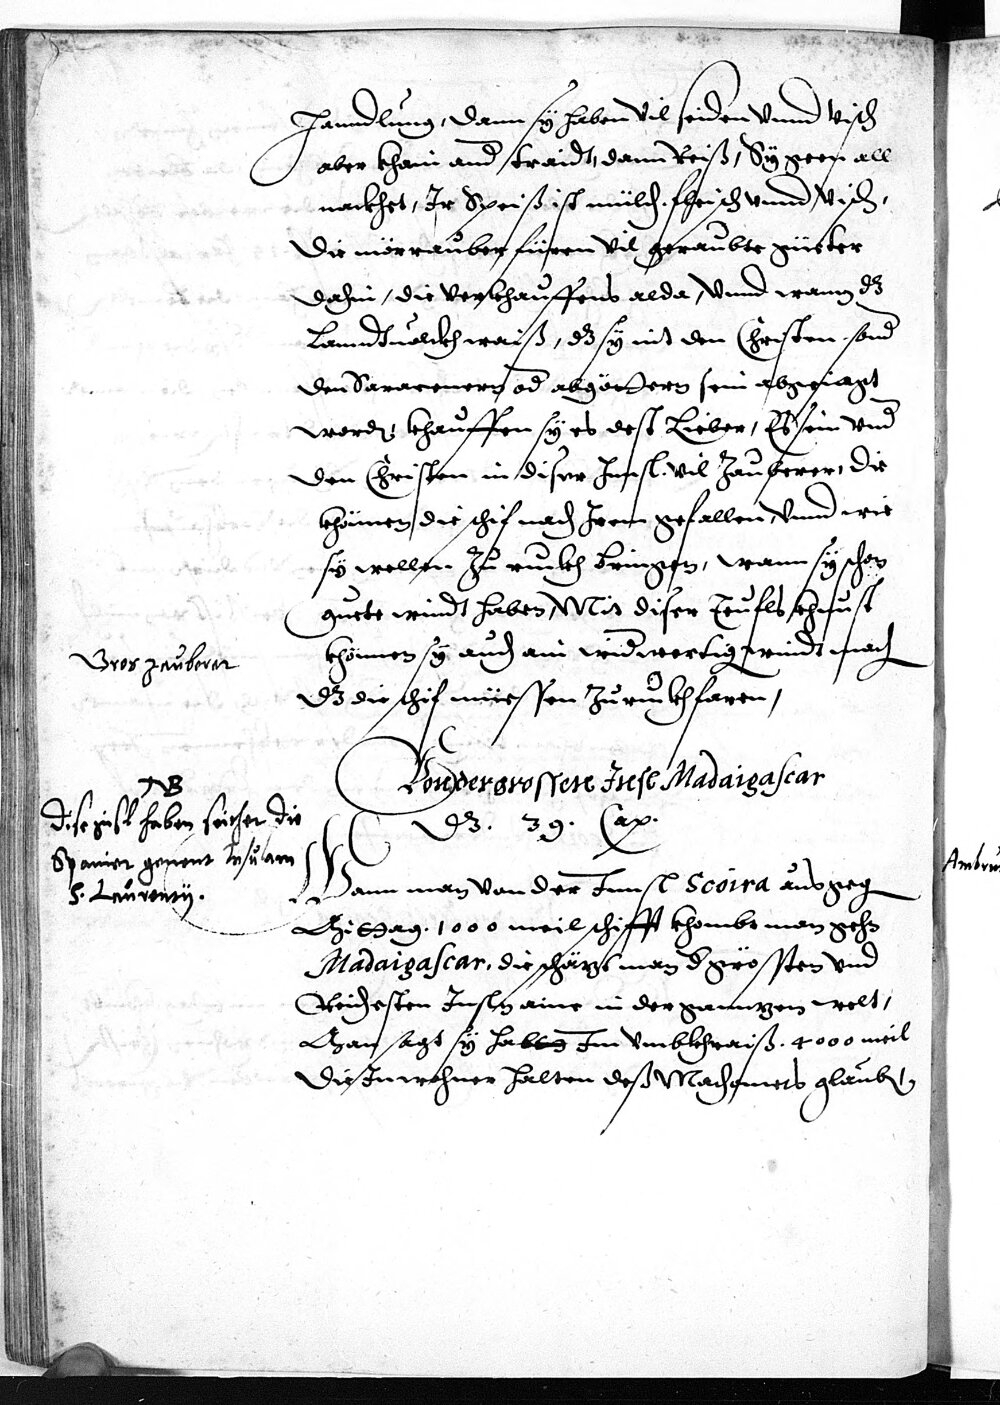 Hanndlung, dann sÿ haben vil seiden vnnd visch
aber khain annd traidt, dann Reiß, Sÿ geen all
nackhet, Ir Speiß ist milch fleisch vnnd visch,
die mörrauber füren vil geraubte güeter
dahin, die verkhauffens alda, vnnd wann dz
Lanndtuolckh waiß, dz sÿ nit den Christen sond
den Saracenern od abgöttern sein abgejagt
word, khauffen sÿ es dest Lieber, Es sein vnd
den Christen in diser Innsl vil Zauberer, die
khönnen die schif nach Irem gefallen, vnnd wie
sÿ wellen Zu ruckh bringen, wann sÿ schon
guete windt haben, Mit diser Teufls khunst
khönnen sÿ auch ain widwertig windt mach
dz die schif müessen Zu ruckh faren,
Gros zauberer
Von der grossen Insl Madaigascar
Dz. 39. Cap.
NB
Dise insl haben seither die
Spanier genent Insulam
S. Laurentÿ.
Wann man von der Innsl Scoira ausgeg
Mittag. 1000 meil schifft khombt man gehn
Madaigascar, die schäzt man d grössten vnd
Reichesten Insln aine in der gannzen welt,
Man sagt sÿ hab Im vmbkhraiß. 4000 meil
Die Inwohner halten deß Machomets glaub,
Ambra